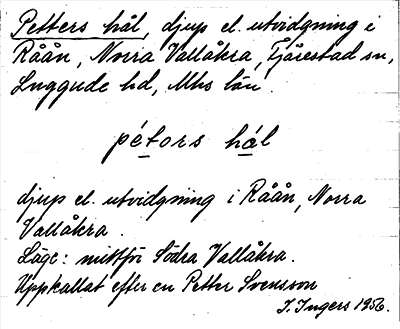 Petters hål, djup el. utvidgning i
Råån, Norra Vallåkra, Fjärestad sn,
Luggude hd, Mhs län.
pétørs hál
djup el. utvidgning i Råån, Norra
Vallåkra.
Läge: mittför Södra Vallåkra.
Uppkallat efter en Petter Svensson
I. Ingers 1956.